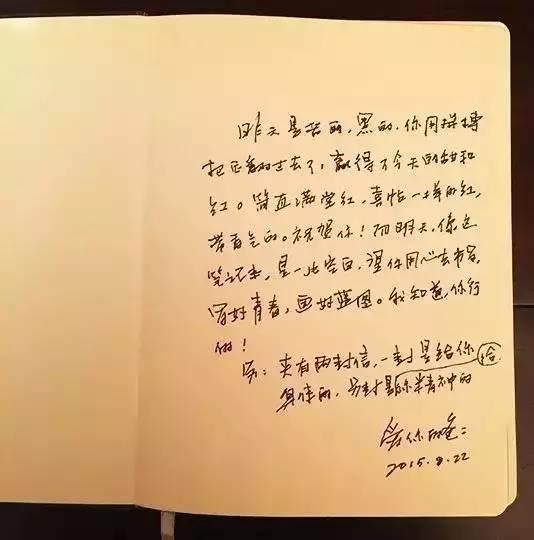 昨天是苦的,黑的,你用拼搏
把它翻过去了,赢得了今天的甜和
红。简直满堂红,喜帖一样的红,
带着气的。祝贺你!而明天,像这
笔记本,是一片空白,得你用心去书写,
写好青春,画好蓝图。我知道,你行
的!
另:夹有两封信,一封是给你
身体的,另封是给你精神的
爱你的爸:
2015.8.22